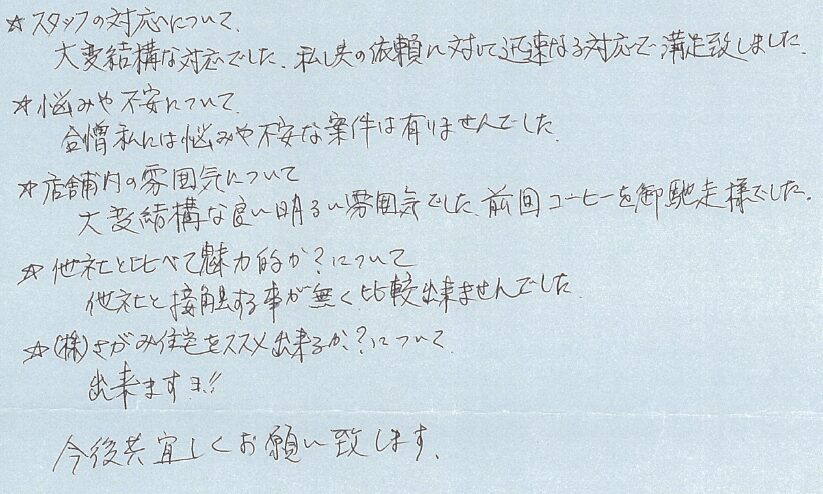 ☆スタッフの対応について、
大変結構な対応でした、私し共の依頼に対して迅速なる対応で満足致しました、
☆悩みや不安について、
合憎私には悩みや不安な案件は有りませんでした、
☆店舗内の雰囲気について
大変結構な良い明るい雰囲気でした、前回コーヒーを御馳走様でした、
☆他社と比べて魅力的か?について
他社と接触する事が無く比較出来ませんでした、
☆(株)さがみ住宅をススメ出来るか?について、
出来ますヨ!!
今後共宜しくお願い致します、